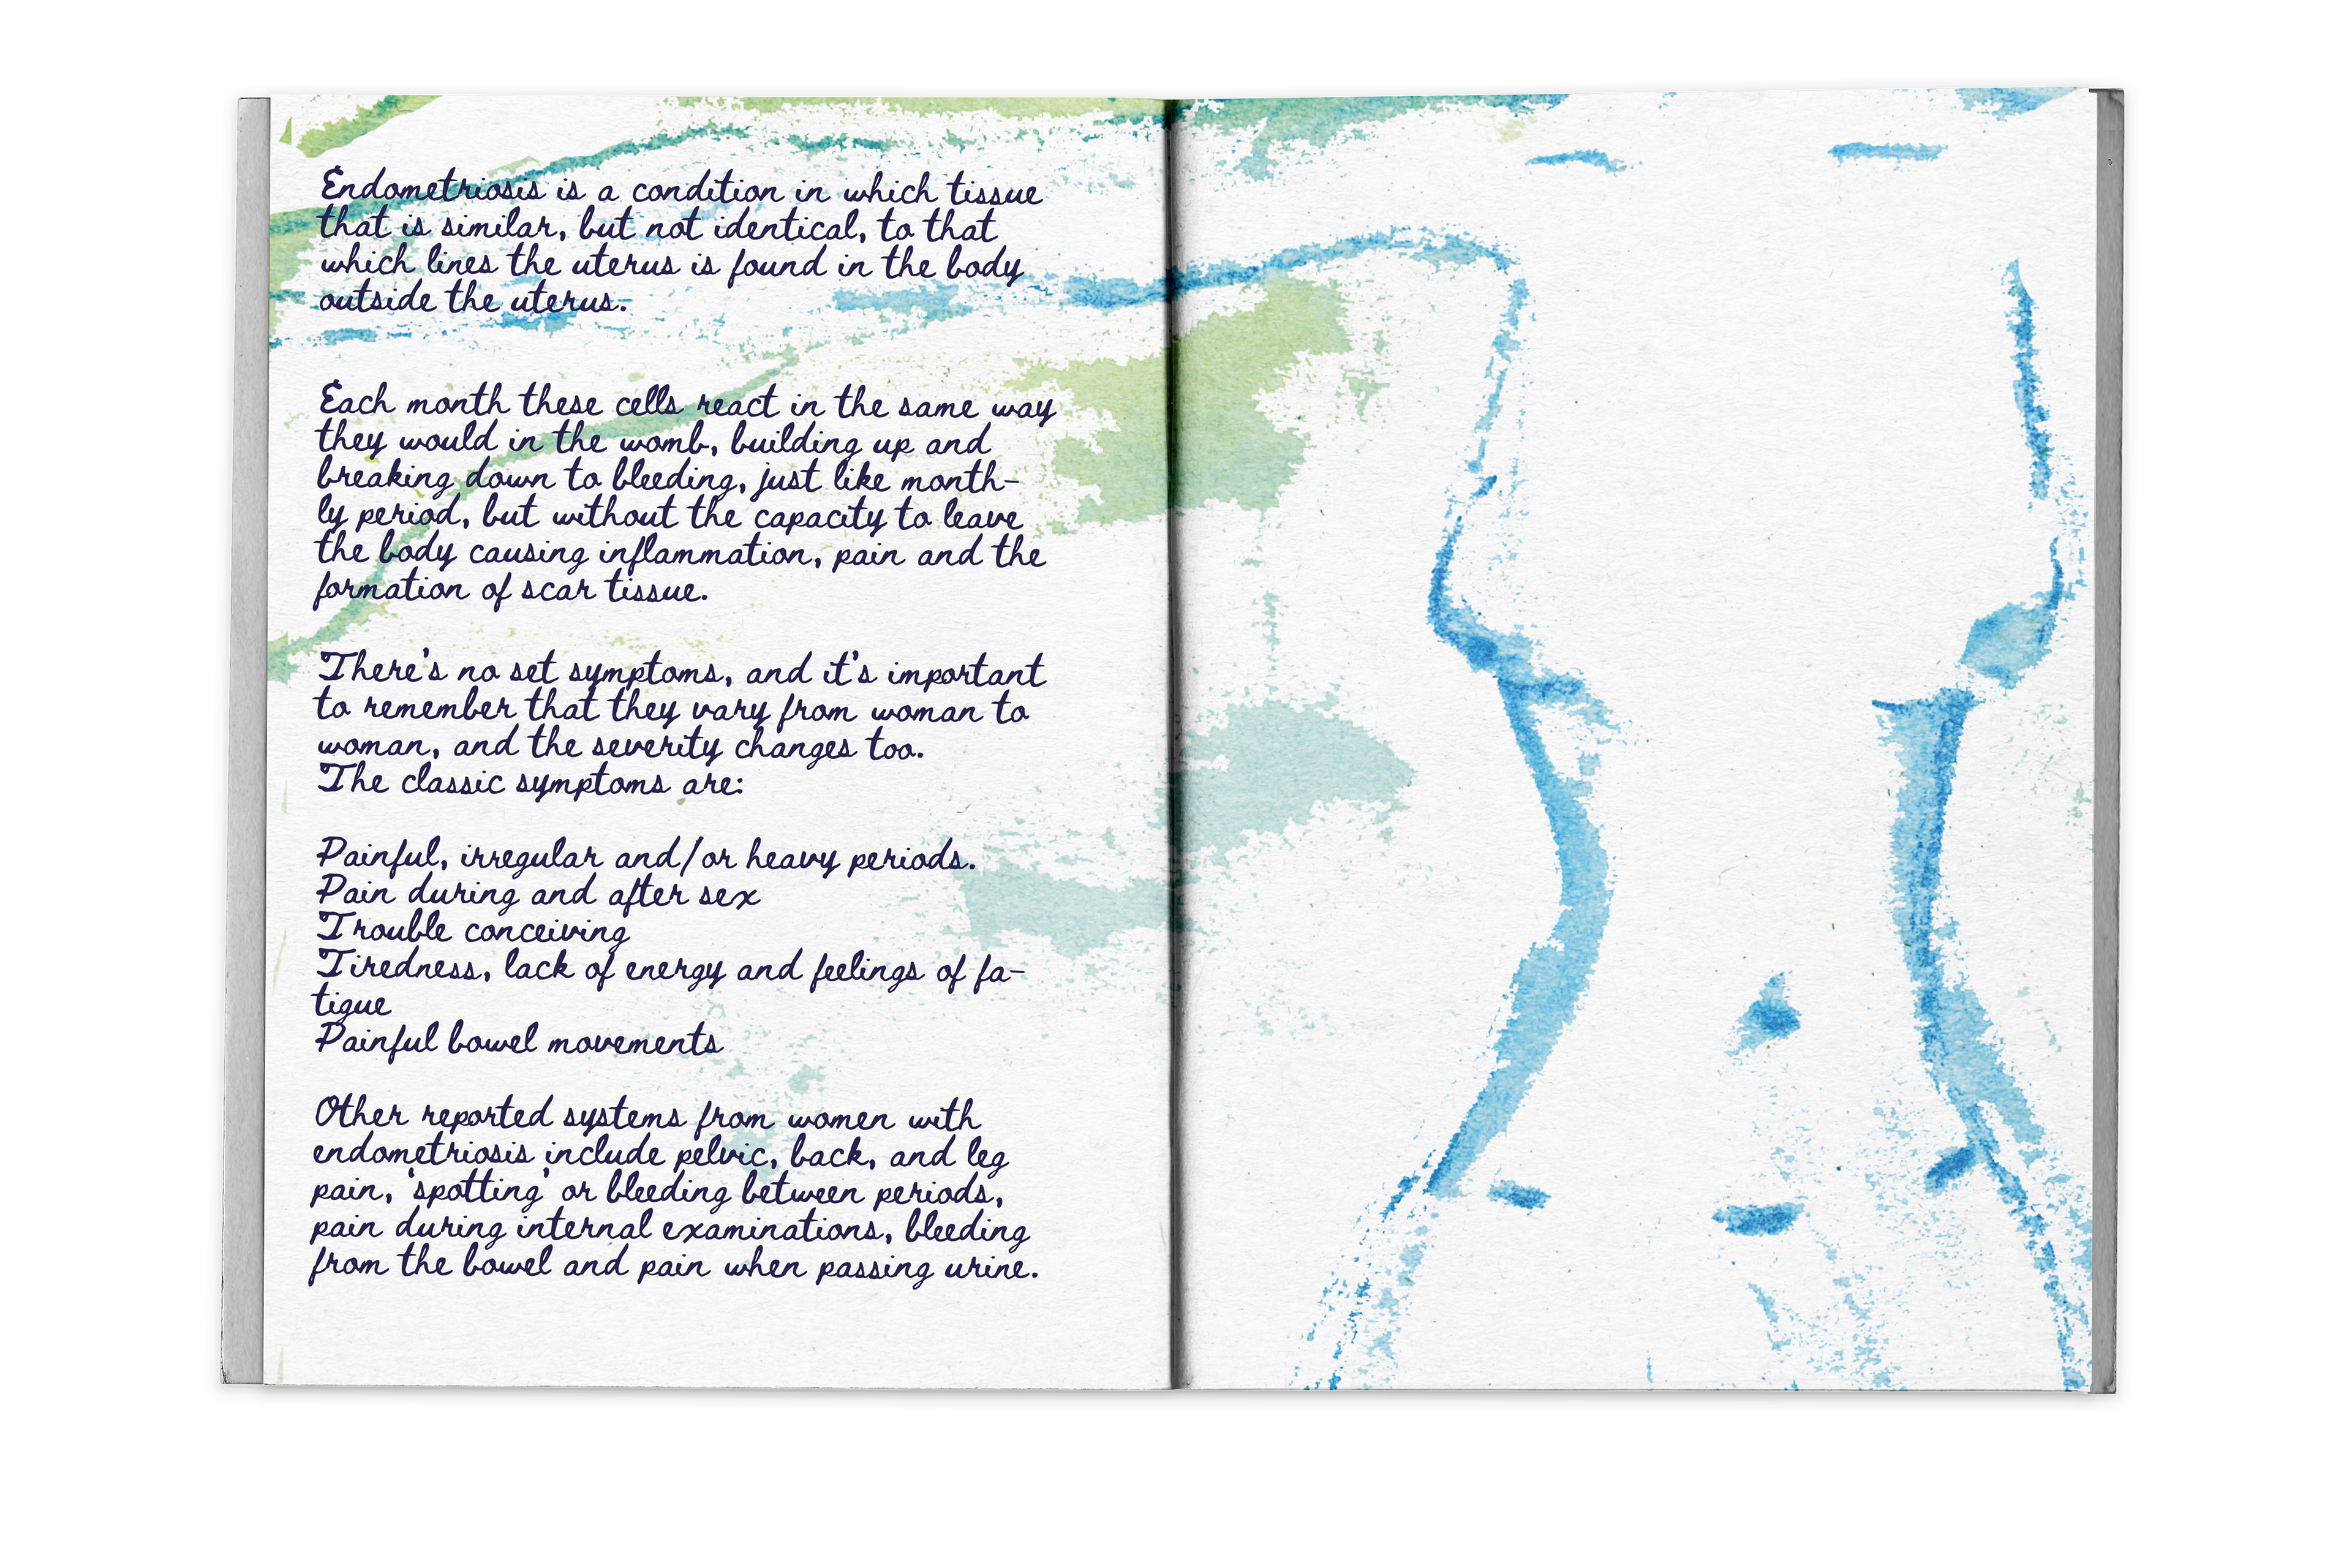 Endometriosis is a condition in which tissue
that is similar, but not identical, to that
which lines the uterus is found in the body
outside the uterus.
Each month these cells react in the same way
they would in the womb, building up and
breaking down to bleeding, just like month-
ly period, but without the capacity to leave
the body causing inflammation, pain and the
formation of scar tissue.
There's no set symptoms, and it's important
to remember that they vary from woman to
woman, and the severity changes too.
The classic symptoms are:
Painful, irregular and/or heavy periods.
Pain during and after sex
Trouble conceiving
Tiredness, lack of energy and feelings of fa-
tigue
Painful bowel movements
Other reported systems from women with
endometriosis include pelvic, back, and leg
pain, 'spotting' or bleeding between periods,
pain during internal examinations, bleeding
from the bowel and pain when passing urine.